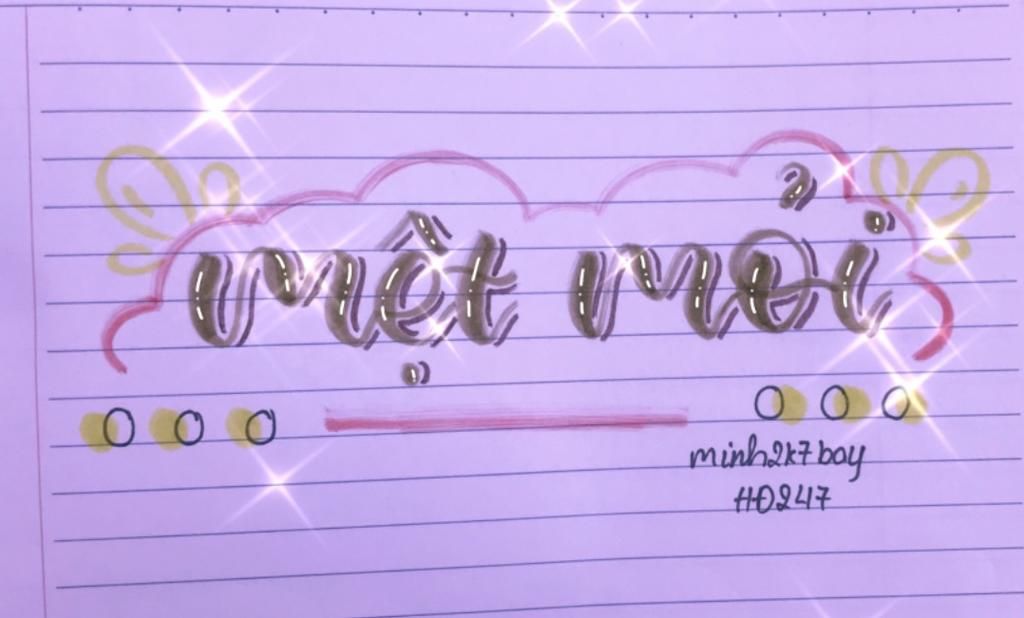 mệt mỏi
minh2k7boy
HĐ247